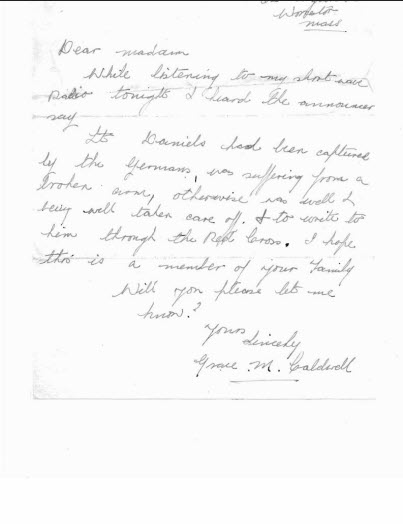 Worcster
Mass
Dear madam
While listening to my short wave
Radio tonight I heard the announcer
say
Lt Daniels had been captured
by the Germans, was suffering from a
broken arm, otherewise was well &
being well taken care off. & to write to
him through the Red Cross. I hope
this is a member of your Family
Will you please let me
know?
Yours
Sincely
Grace M. Caldwell